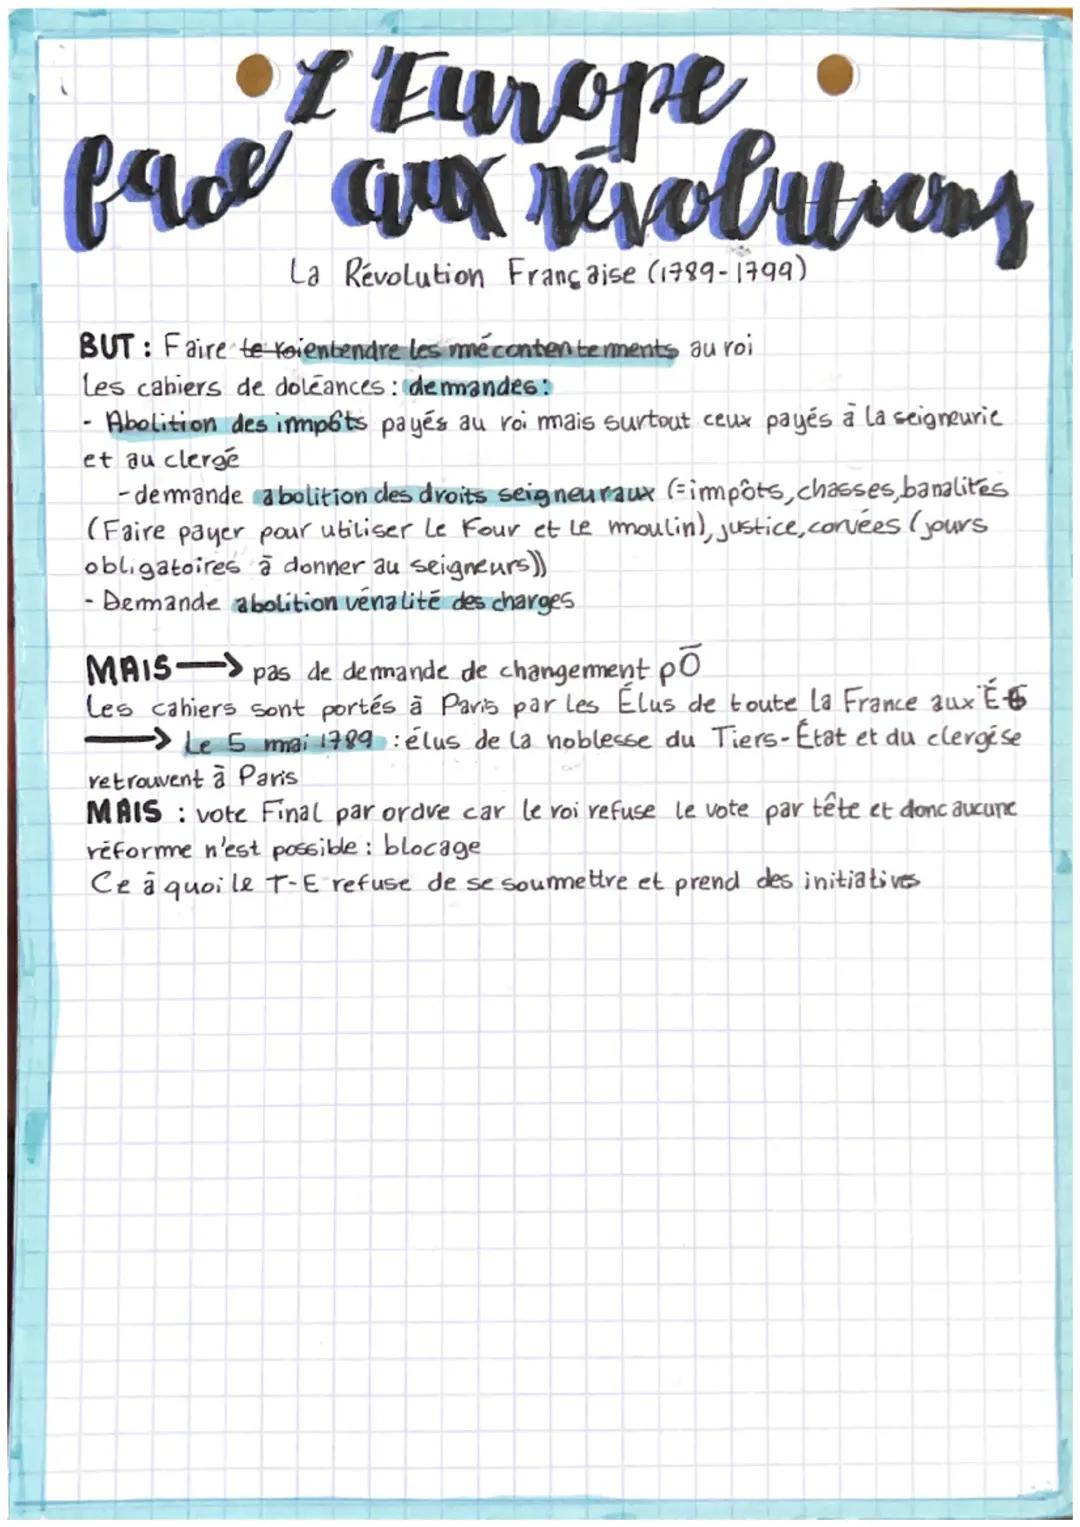 L'Europe
face aux révolutions
La Révolution Française (1789-1799)
BUT : Faire le roi entendre les mécontentements au roi
Les cahiers de doléances : demandes :
- Abolition des impôts payés au roi mais surtout ceux payés à la seigneurie
et au clergé
- demande abolition des droits seigneuraux (=impôts, chasses, banalités
(Faire payer pour utiliser le Four et le moulin), justice, corvées (jours
obligatoires à donner au seigneurs))
- Demande abolition vénalité des charges
MAIS → pas de demande de changement pO
Les cahiers sont portés à Paris par les Élus de toute la France aux É
→ Le 5 mai 1789 : élus de la noblesse du Tiers-État et du clergé se
retrouvent à Paris
MAIS : vote Final par ordre car le roi refuse le vote par tête et donc aucune
réforme n'est possible : blocage
Ce à quoi le T-E refuse de se soumettre et prend des initiatives